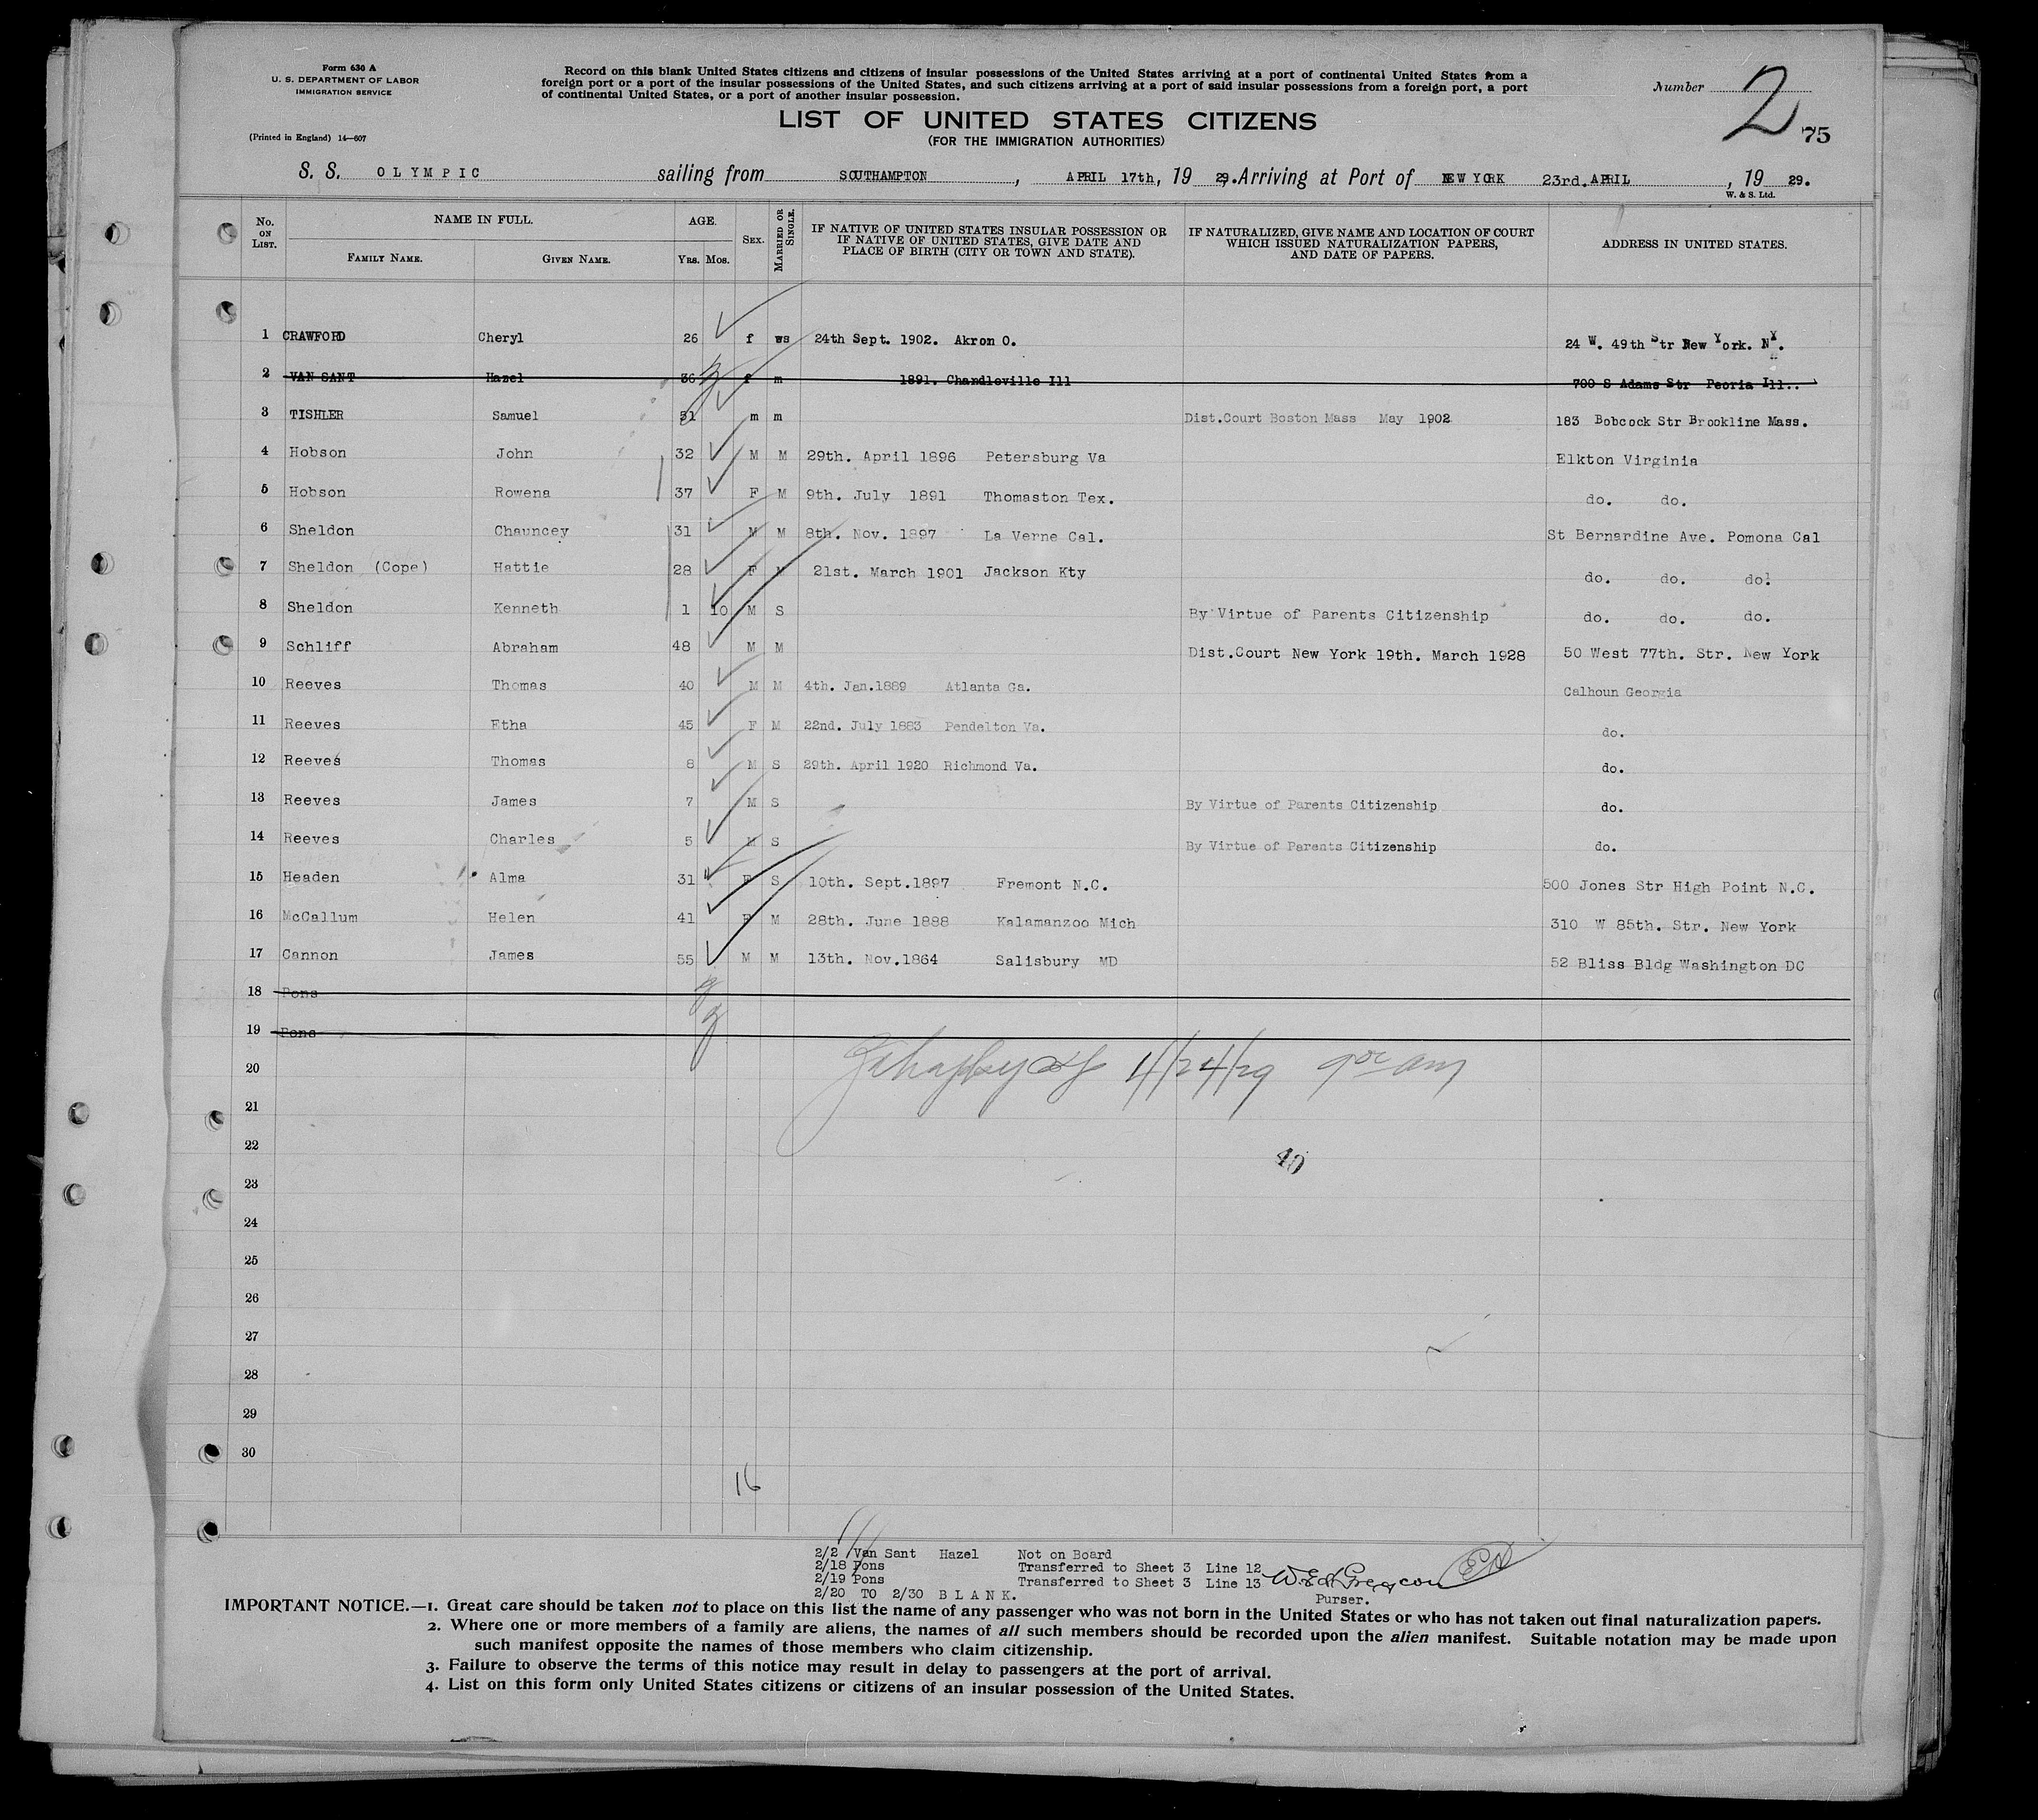 Form 630 A
U. S. DEPARTMENT OF LABOR
IMMIGRATION SERVICE
(Printed in England) 14—607
Record on this blank United States citizens and citizens of insular possessions of the United States arriving at a port of continental United States from a
foreign port or a port of the insular possessions of the United States, and such citizens arriving at a port of said insular possessions from a foreign port, a port
of continental United States, or a port of another insular possession.
Number 2
75
LIST OF UNITED STATES CITIZENS
(FOR THE IMMIGRATION AUTHORITIES)
S. S. OLYMPIC sailing from SOUTHAMPTON, APRIL 17th, 19 29. Arriving at Port of NEW YORK 23rd. APRIL, 19 29.
W. & S. Ltd.
No. ON LIST. NAME IN FULL. FAMILY NAME. GIVEN NAME. AGE. YRS. MOS. SEX. MARRIED OR SINGLE. IF NATIVE OF UNITED STATES INSULAR POSSESSION OR IF NATIVE OF UNITED STATES, GIVE DATE AND PLACE OF BIRTH (CITY OR TOWN AND STATE). IF NATURALIZED, GIVE NAME AND LOCATION OF COURT WHICH ISSUED NATURALIZATION PAPERS, AND DATE OF PAPERS. ADDRESS IN UNITED STATES.
1 CRAWFORD Cheryl 26 f ws 24th Sept. 1902. Akron O. 24 W. 49th Str New York. NY.
2 VAN SANT Hazel 36 f m 1891. Chandleville Ill 700 S Adams Str Peoria Ill..
3 TISHLER Samuel 51 m m Dist.Court Boston Mass May 1902 183 Bobcock Str Brookline Mass.
4 Hobson John 32 M M 29th. April 1896 Petersburg Va Elkton Virginia
5 Hobson Rowena 37 F M 9th. July 1891 Thomaston Tex. do. do.
6 Sheldon Chauncey 31 M M 8th. Nov. 1897 La Verne Cal. St Bernardine Ave. Pomona Cal
7 Sheldon (Cope) Hattie 28 F M 21st. March 1901 Jackson Kty do. do. do.
8 Sheldon Kenneth 1 10 M S By Virtue of Parents Citizenship do. do. do.
9 Schliff Abraham 48 M M Dist.Court New York 19th. March 1928 50 West 77th. Str. New York
10 Reeves Thomas 40 M M 4th. Jan.1889 Atlanta Ga. Calhoun Georgia
11 Reeves Etha 45 F M 22nd. July 1883 Pendelton Va. do.
12 Reeves Thomas 8 M S 29th. April 1920 Richmond Va. do.
13 Reeves James 7 M S By Virtue of Parents Citizenship do.
14 Reeves Charles 5 M S By Virtue of Parents Citizenship do.
15 Headen Alma 31 F S 10th. Sept.1897 Fremont N.C. 500 Jones Str High Point N.C.
16 McCallum Helen 41 F M 28th. June 1888 Kalamanzoo Mich 310 W 85th. Str. New York
17 Cannon James 55 M M 13th. Nov.1864 Salisbury MD 52 Bliss Bldg Washington DC
18 Pons
19 Pons
20
4/24/29 9 am
21
22
40
23
24
25
26
27
28
29
30
16
2/2 Van Sant Hazel Not on Board
2/18 Pons Transferred to Sheet 3 Line 12
2/19 Pons Transferred to Sheet 3 Line 13
2/20 TO 2/30 BLANK.
Purser.
IMPORTANT NOTICE.—1. Great care should be taken not to place on this list the name of any passenger who was not born in the United States or who has not taken out final naturalization papers.
2. Where one or more members of a family are aliens, the names of all such members should be recorded upon the alien manifest. Suitable notation may be made upon
such manifest opposite the names of those members who claim citizenship.
3. Failure to observe the terms of this notice may result in delay to passengers at the port of arrival.
4. List on this form only United States citizens or citizens of an insular possession of the United States.